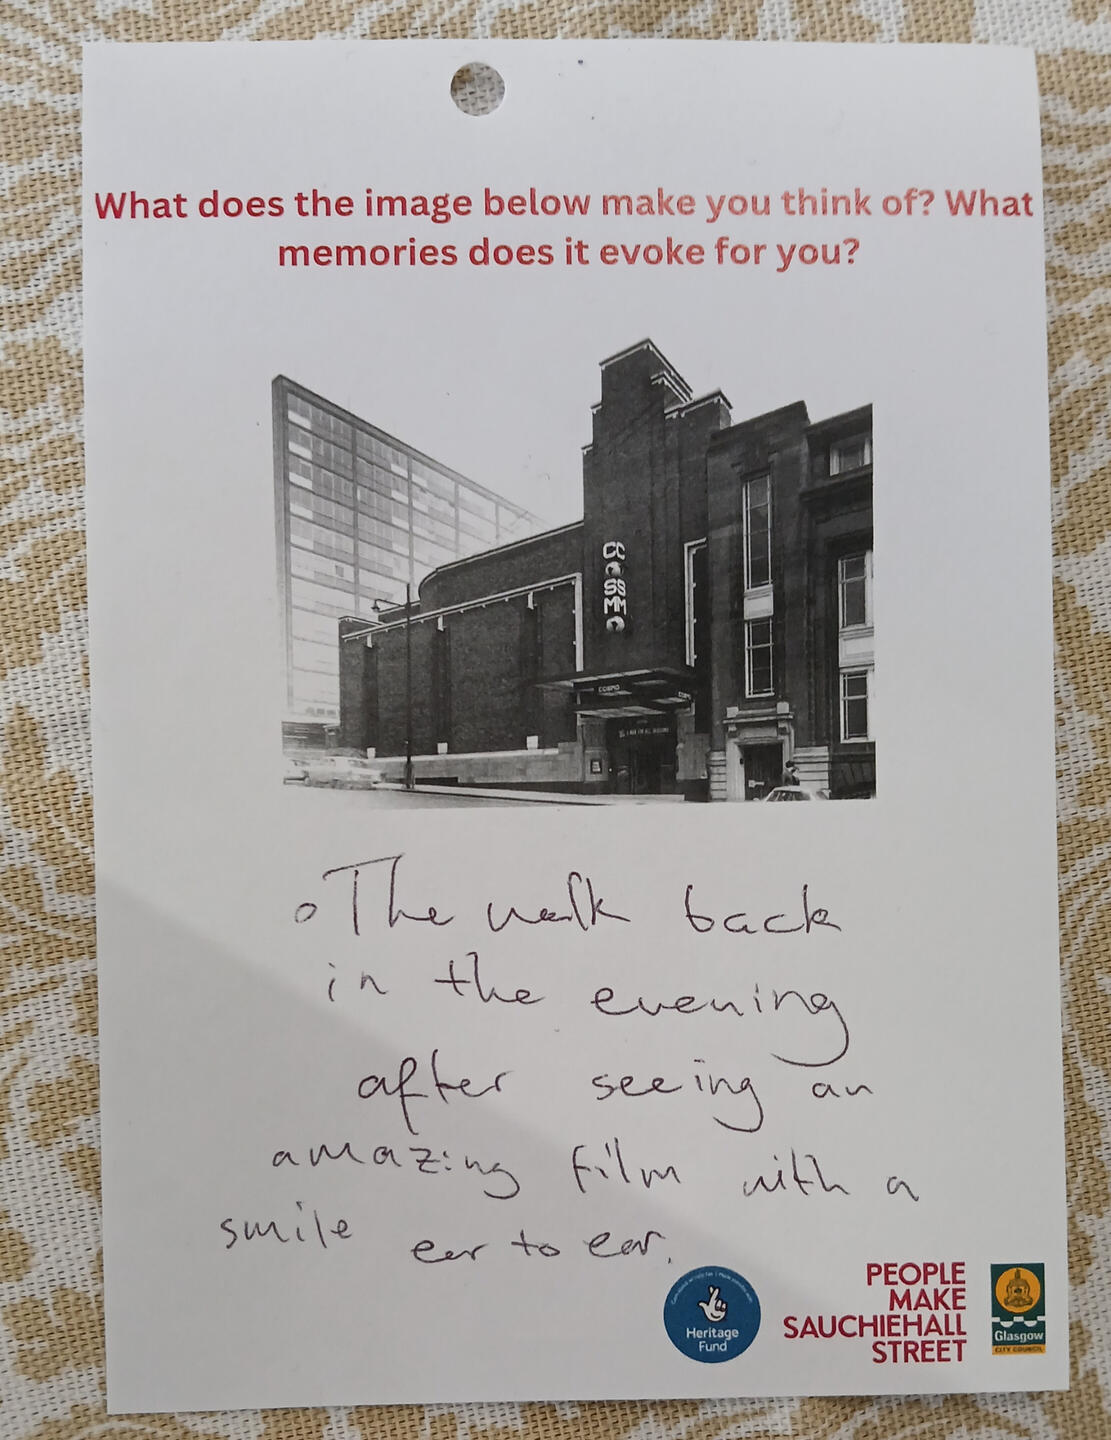 What does the image below make you think of? What
memories does it evoke for you?
CC
SS
MM
COSMO
The walk back
in the evening
after seeing an
amazing film with a
smile ear to ear.
Heritage
Fund
PEOPLE
MAKE
SAUCHIEHALL
STREET
Glasgow
CITY COUNCIL